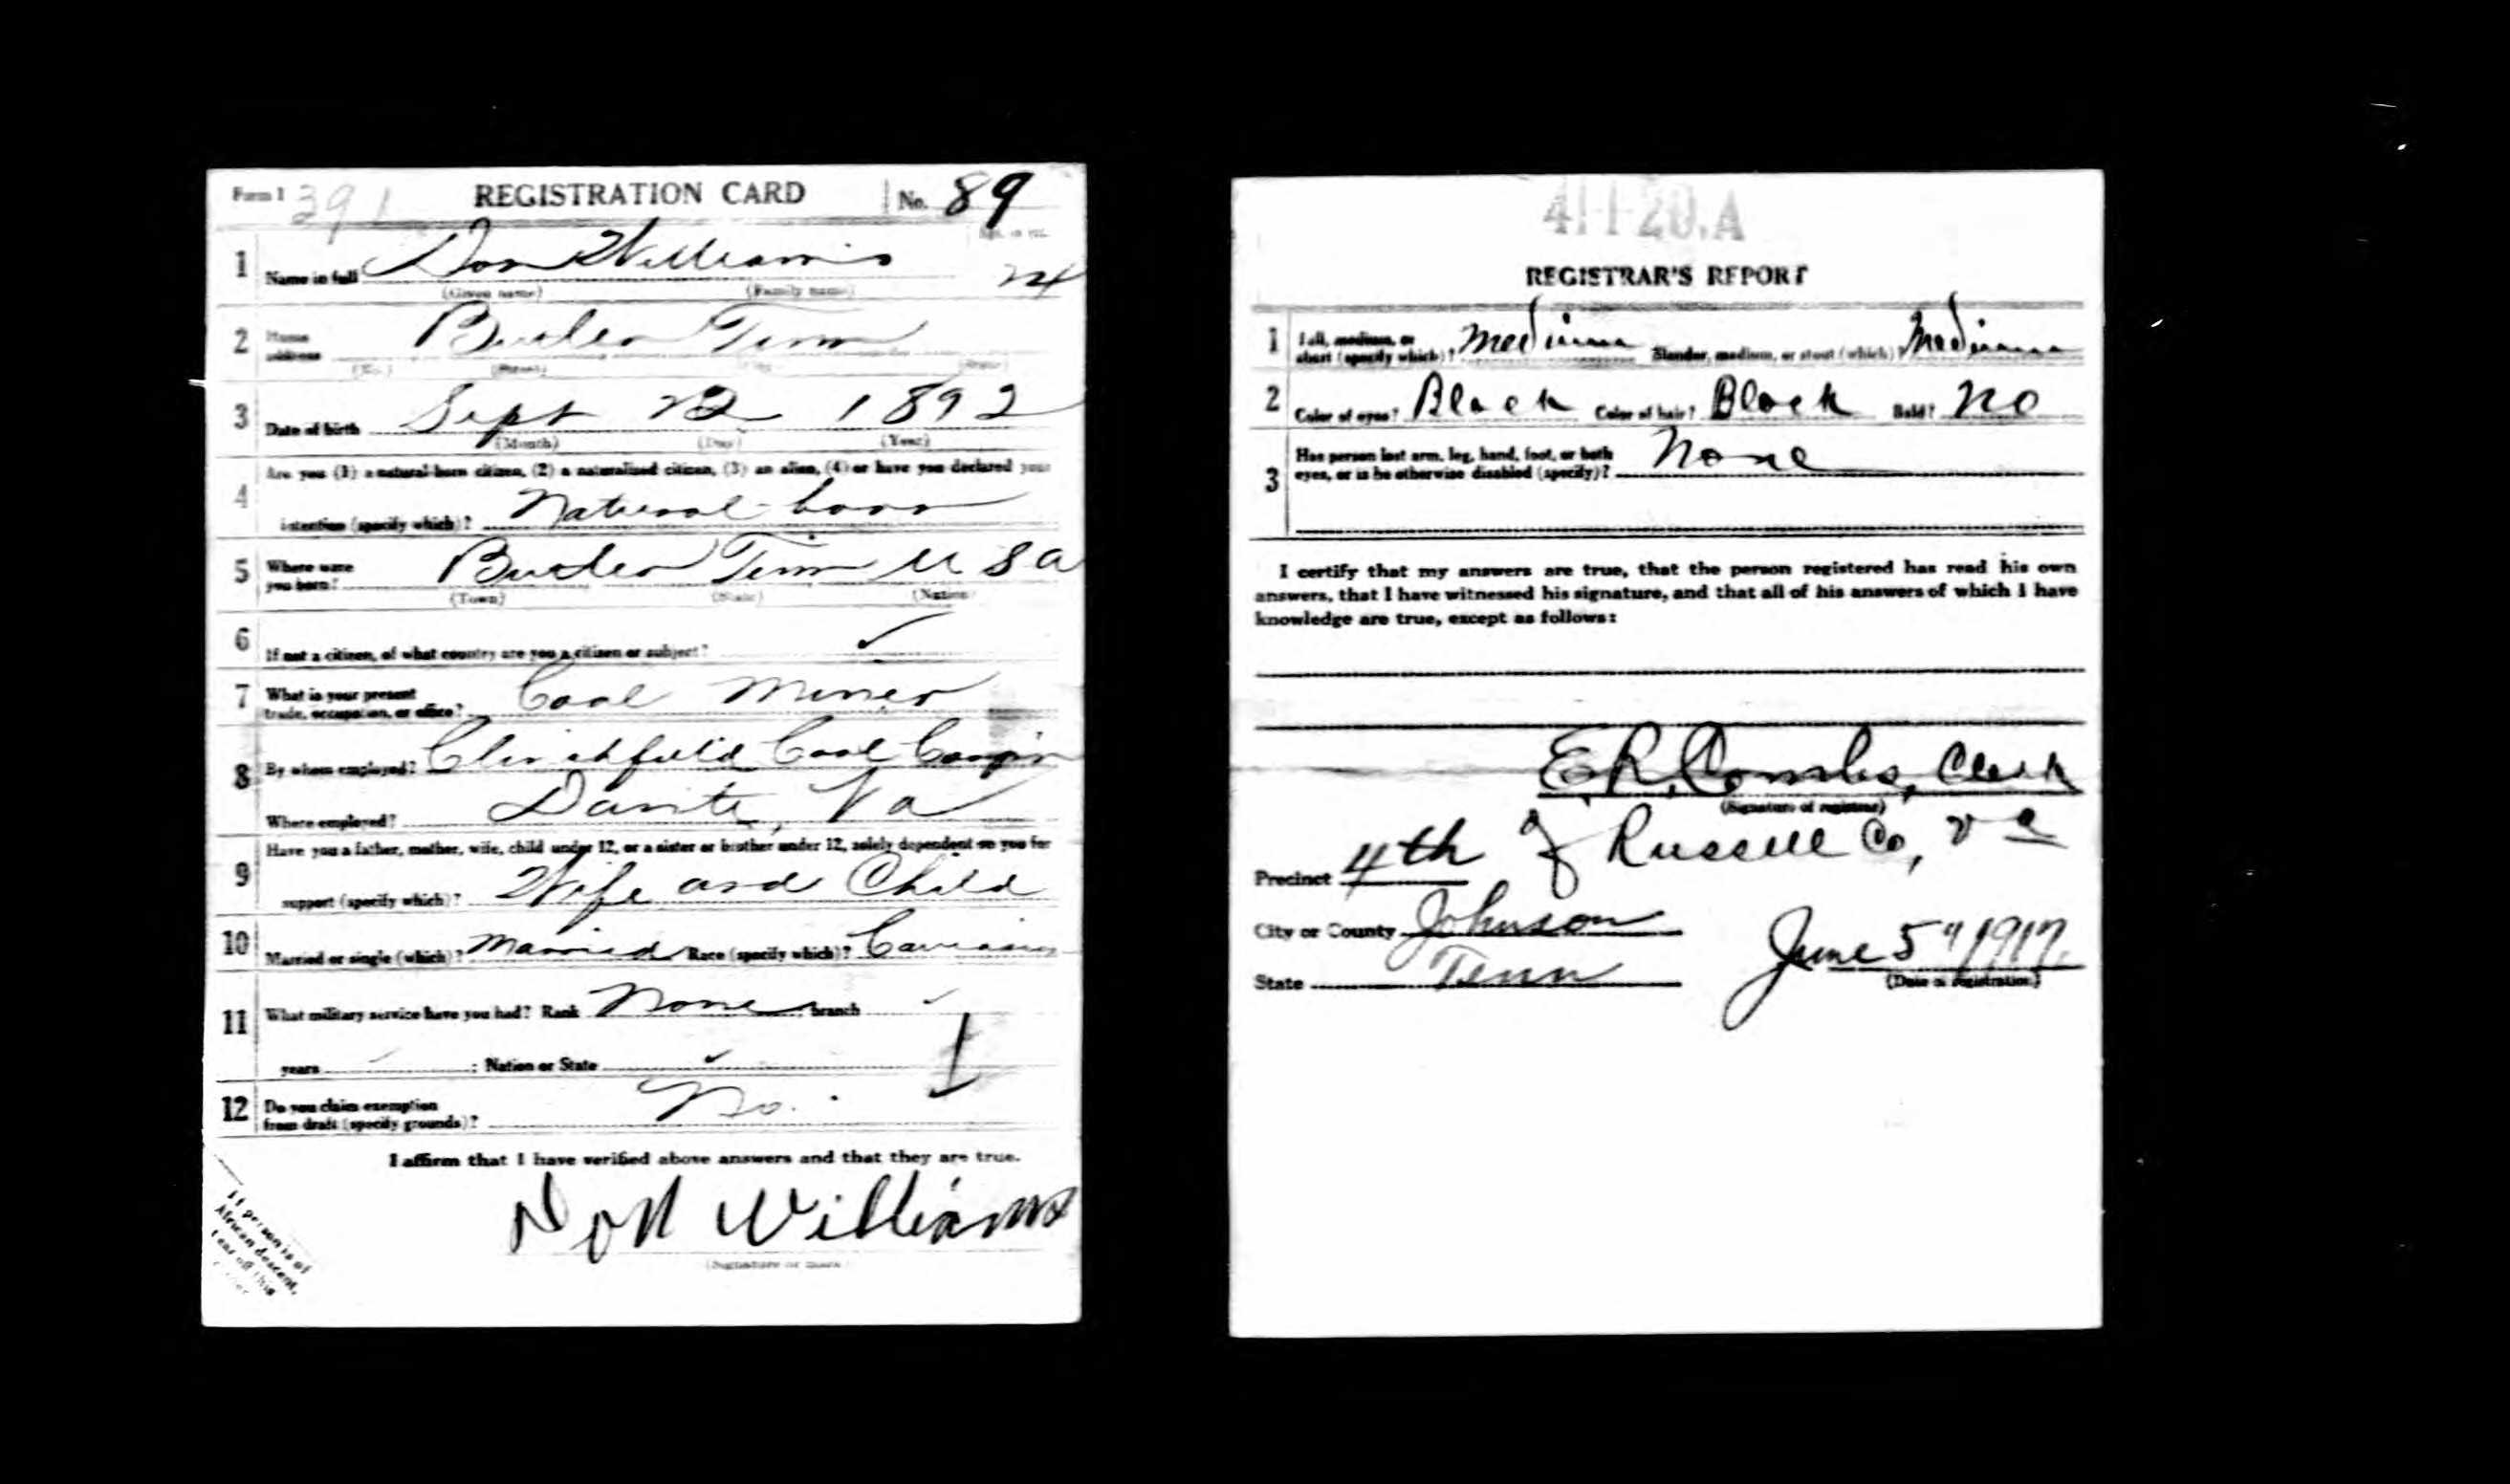 Form 1 391 REGISTRATION CARD No. 89
1 Name in full Don Williams 24
(Given name) (Family name)
2 Home address Butler Tenn
(No.) (Street) (City) (State)
3 Date of birth Sept 22 1892
(Month) (Day) (Year)
Are you (1) a natural-born citizen, (2) a naturalized citizen, (3) an alien, (4) or have you declared your
4 intention (specify which)? Natural-born
5 Where were you born? Butler Tenn U S a
(Town) (State) (Nation)
6 If not a citizen, of what country are you a citizen or subject? ✓
7 What is your present
trade, occupation, or office? Coal Miner
8 By whom employed? Clinchfield Coal
Where employed? Dante, Va
Have you a father, mother, wife, child under 12, or a sister or brother under 12, solely dependent on you for
9 support (specify which)? Wife and Child
10 Married or single (which)? Married Race (specify which)? Caucasian
11 What military service have you had? Rank None branch ✓
years ✓ ; Nation or State ✓
12 Do you claim exemption
from draft (specify grounds)? No.
I affirm that I have verified above answers and that they are true.
Don Williams
(Signature or mark)
If person is of
African descent,
tear off this
corner
41-1-20.A
REGISTRAR'S REPORT
1 Tall, medium, or
short (specify which)? Medium Slender, medium, or stout (which)? Medium
2 Color of eyes? Black Color of hair? Black Bald? No
3 Has person lost arm, leg, hand, foot, or both
eyes, or is he otherwise disabled (specify)? None
I certify that my answers are true, that the person registered has read his own
answers, that I have witnessed his signature, and that all of his answers of which I have
knowledge are true, except as follows:
E.R. Combs, Clerk
(Signature of registrar)
Precinct 4th of Russell Co, Va
City or County Johnson
State Tenn June 5" 1917.
(Date of registration)